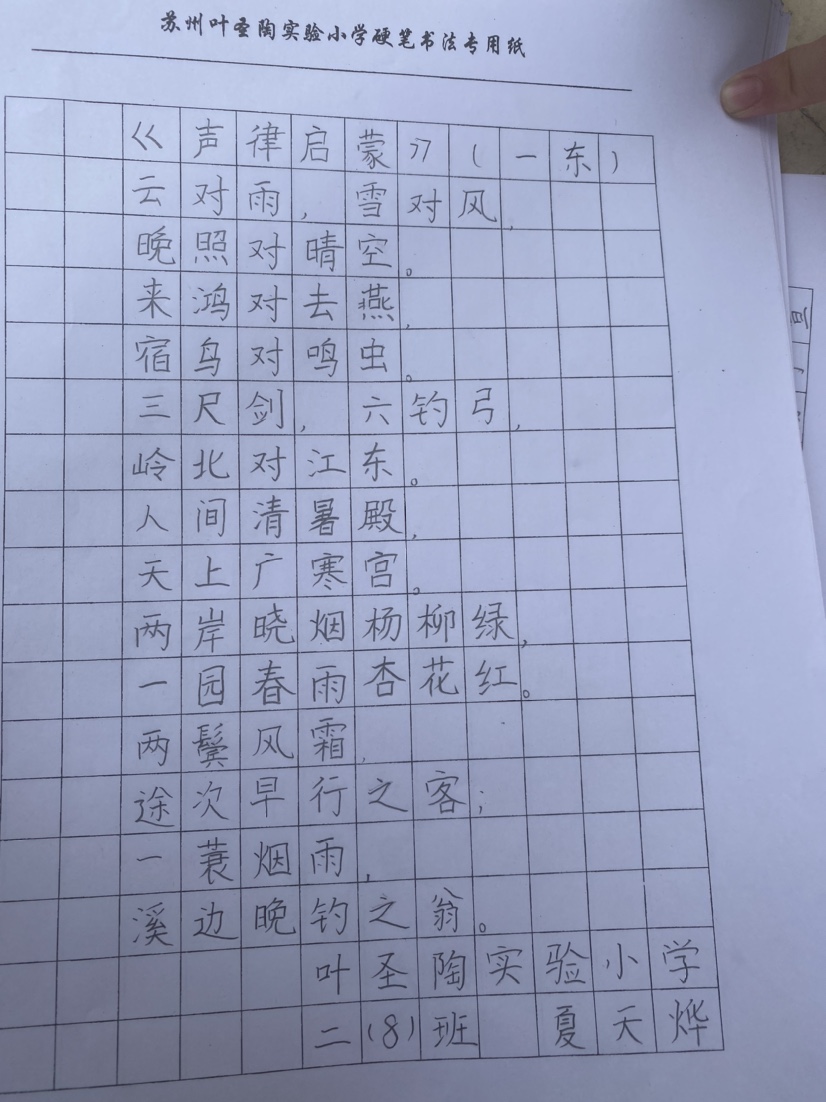 苏州叶圣陶实验小学硬笔书法专用纸
《声律启蒙》(一东)
云对雨,雪对风,
晚照对晴空。
来鸿对去燕,
宿鸟对鸣虫。
三尺剑,六钓弓,
岭北对江东。
人间清暑殿,
天上广寒宫。
两岸晓烟杨柳绿,
一园春雨杏花红。
两鬓风霜,
途次早行之客;
一蓑烟雨,
溪边晚钓之翁。
叶圣陶实验小学
二(8)班 夏天烨